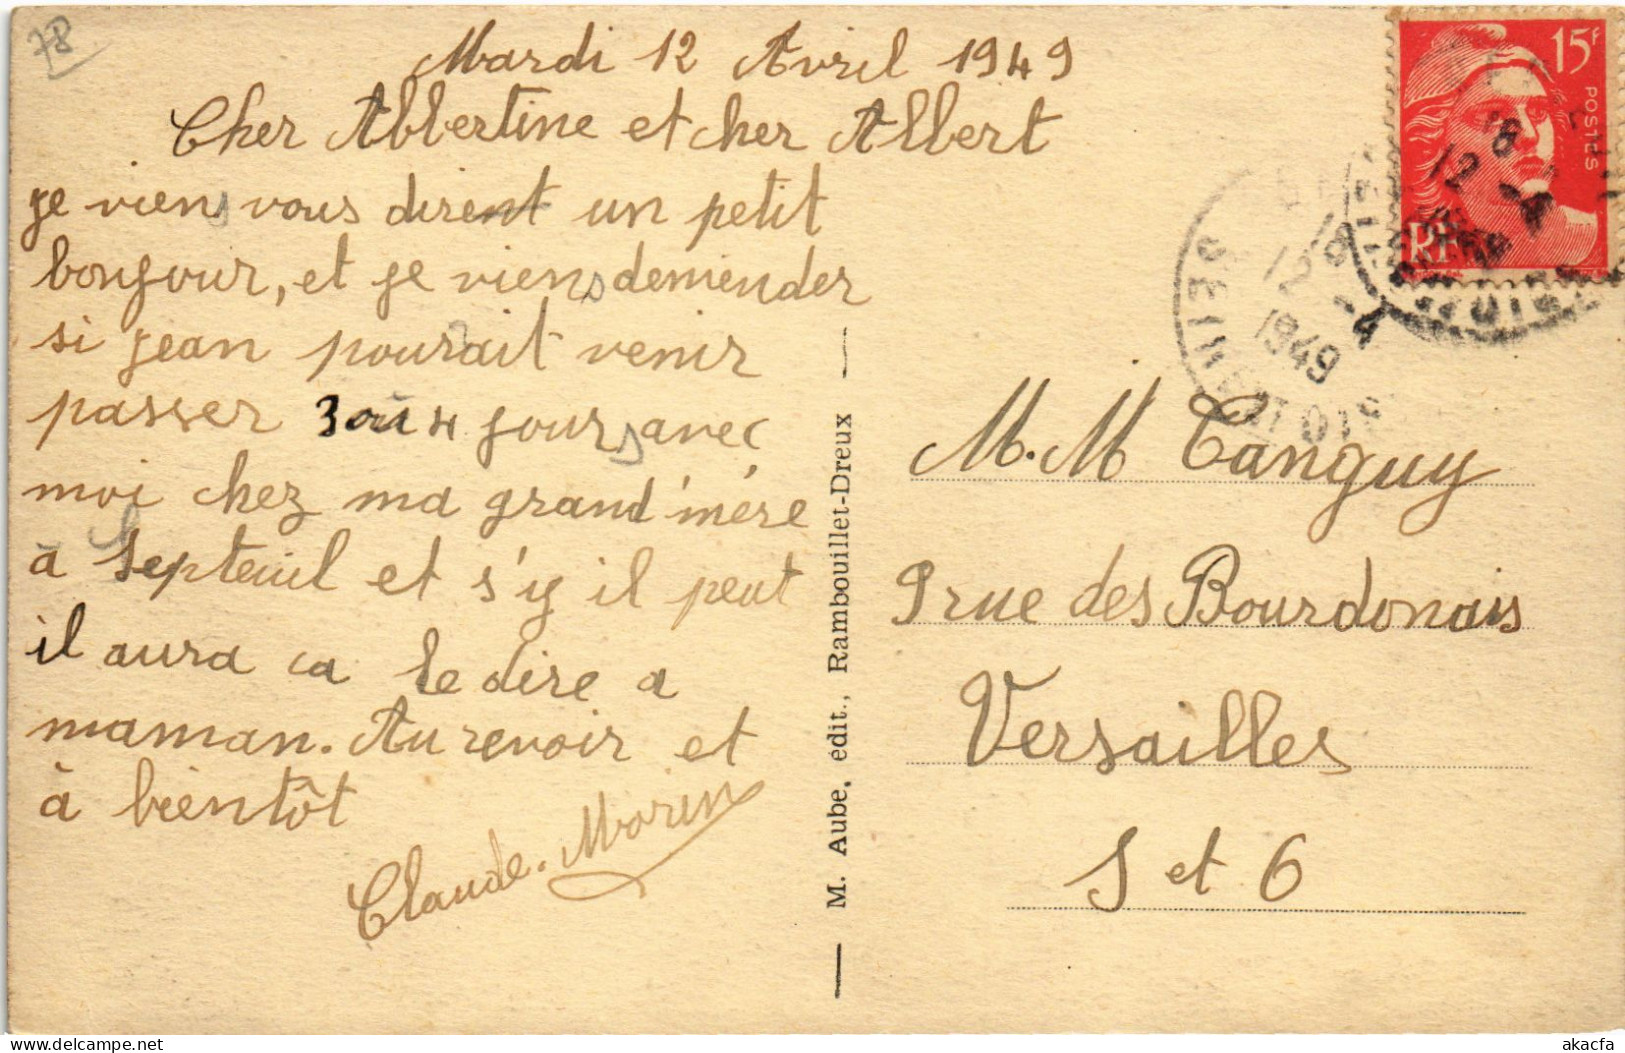 78
Mardi 12 Avril 1949
Cher Abbertine et cher Albert
je viens vous dirent un petit
bonjour, et je viens demender
si jean pourait venir
passer 3 où 4 jours avec
moi chez ma grand'mère
à Septeuil et s'y il peut
il aura ca le dire a
maman. Au revoir et
à bientôt
Claude. Morin
M. Aube, édit., Rambouillet-Dreux
15F
POSTES
RF
12 - 4
1949
SEINE ET OISE
M. M Tanguy
9 rue des Bourdonais
Versailles
S et O
akacfa